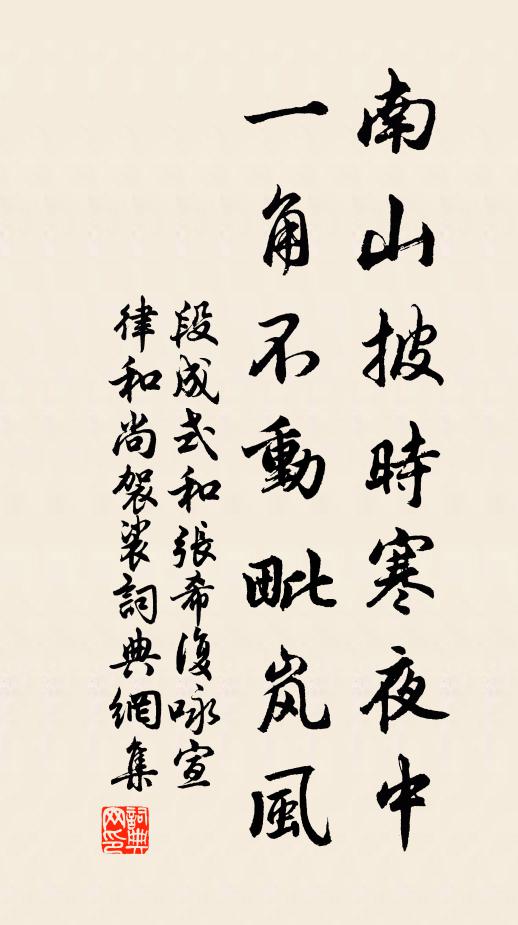 南山披時寒夜中
一角不動毗岚風
段成式和張希復咏宣
律和尚袈裟詞典網集
詞典
网印